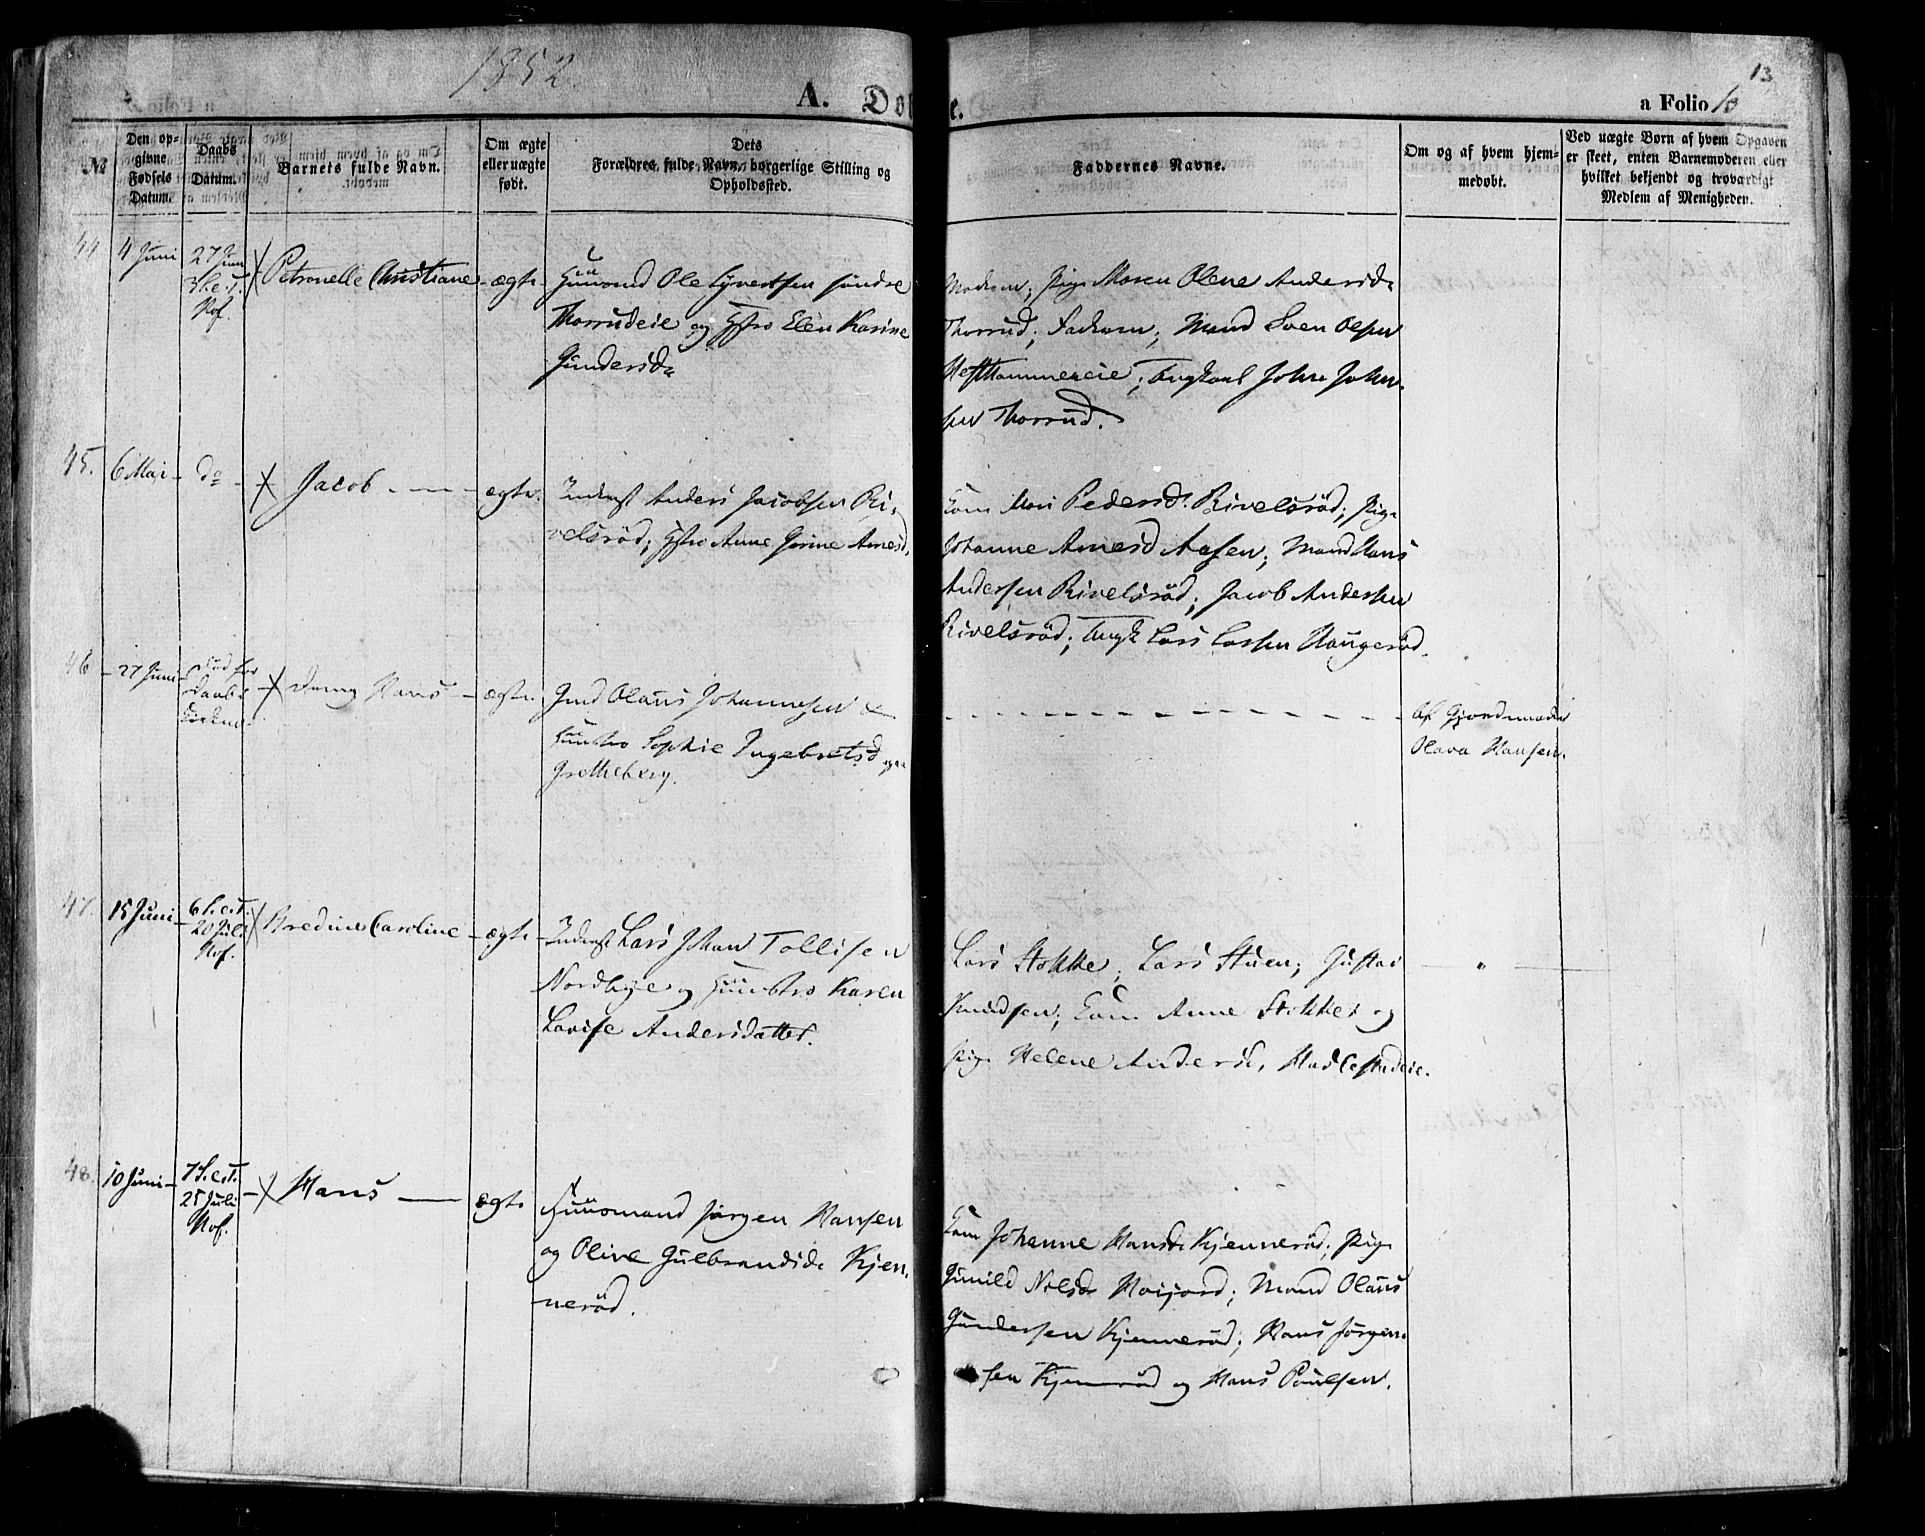 1852.
13
A. Døb
e.
a Folio 13
№
Den op-
givne
Fødsels
Datum.
Daabs
Datum.
Barnets fulde Navn.
Om ægte
eller uægte
født.
Dets
Forældres fulde Navn, borgerlige Stilling og
Opholdssted.
Faddernes Navne.
Om og af hvem hjem-
medøbt.
Ved uægte Børn af hvem Opgaven
er skeet, enten Barnemoderen eller
hvilket bekjendt og troværdigt
Medlem af Menigheden.
44
4 Juni
27 Juni
3 S. e. T.
Hof.
Petronelle Christiane
ægte
Huusmd Ole Syvertsen søndre
Thorrudeie og Hstro Elen Karine
Gundersd.
Modren; Pige Maren Olene Andersd.
Thorrud; Faderen; Mand Sven Olsen
eie; Ungkarl John John-
sen Thorrud.
45.
6 Mai
do
Jacob
ægte.
Inderst Anders Jacobsen Ri-
velsrød; Hstro Anne Arnesd.
Kone Mari Pedersd. Rivelsrød; Pige
Johanne Arnesd Aasen; Mand Hans
Andersen Rivelsrød; Jacob Andersen
Rivelsrød; Ungk Lars Larsen Haugerød.
46
27 Juni
død før
Daab i
Kirken.
Hans
ægte.
Gmd Olaus Johannesen &
Hustro Sophie Ingebretsd
Grætteberg.
Af Gjordemoder
Olava Hansen.
47.
15 Juni
6 S. e. T.
20 Juli
Hof.
Bredine Caroline
ægte
Inderst Lars Johan Tollisen
Nordbye og Huustro Karen
Lovise Andersdatter.
Lars Stokke; Lars Stuen; Gustav
Knudsen; Kone Anne Stokke og
Pige Helene Andersd.
48.
10 Juni
7 S. e. T.
25 Juli
Hof.
Hans
ægte
Huusmand Jørgen Hansen
og Olive Gulbrandsd. Kjen-
nerød.
Kone Johanne Hansd. Kjennerød; Pige
Gunild Nilsd. Høijord; Mand Olaus
Gundersen Kjennerød; Hans Jørgen-
sen Kjennerød og Hans Paulsen.